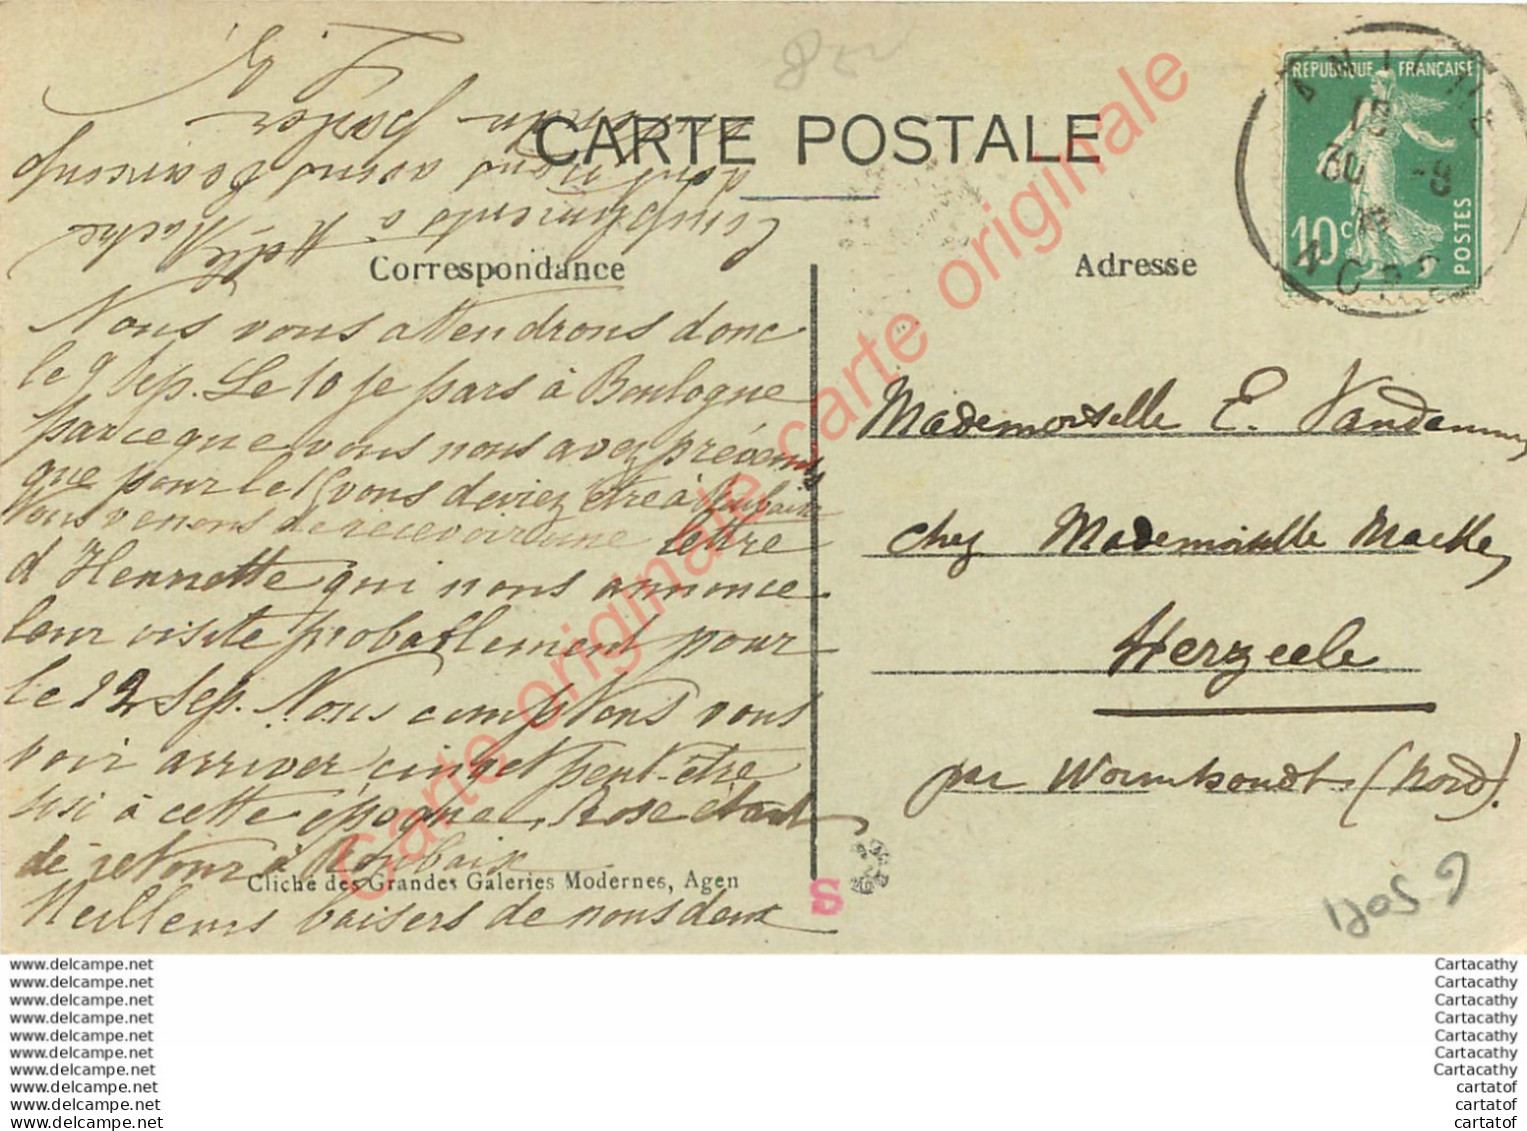 CARTE POSTALE
Correspondance
Adresse
RÉPUBLIQUE FRANÇAISE
10c
POSTES
NORD
Nous vous attendrons donc
le 9 Sep. Le 10 je pars à Boulogne
parceque vous nous avez prévenus
que pour le 15 vous deviez être à Roubaix
Nous venons de recevoir une lettre
d'Henriette qui nous annonce
leur visite probablement pour
le 12 Sep. Nous comptons vous
voir arriver peut-être
aussi à cette époque, Rose étant
de retour à Roubaix
Meilleurs baisers de nous deux
Compliments à Melle Macke
dont nous avons beaucoup
parler
Mademoiselle E. Vandamme
chez Mademoiselle Macke,
Herzeele
par Wormhoudt (Nord).
Cliché des Grandes Galeries Modernes, Agen
S
Carte originale carte originale carte originale
www.delcampe.net
www.delcampe.net
www.delcampe.net
www.delcampe.net
www.delcampe.net
www.delcampe.net
www.delcampe.net
www.delcampe.net
www.delcampe.net
www.delcampe.net
Cartacathy
Cartacathy
Cartacathy
Cartacathy
Cartacathy
Cartacathy
Cartacathy
cartatof
cartatof
cartatof